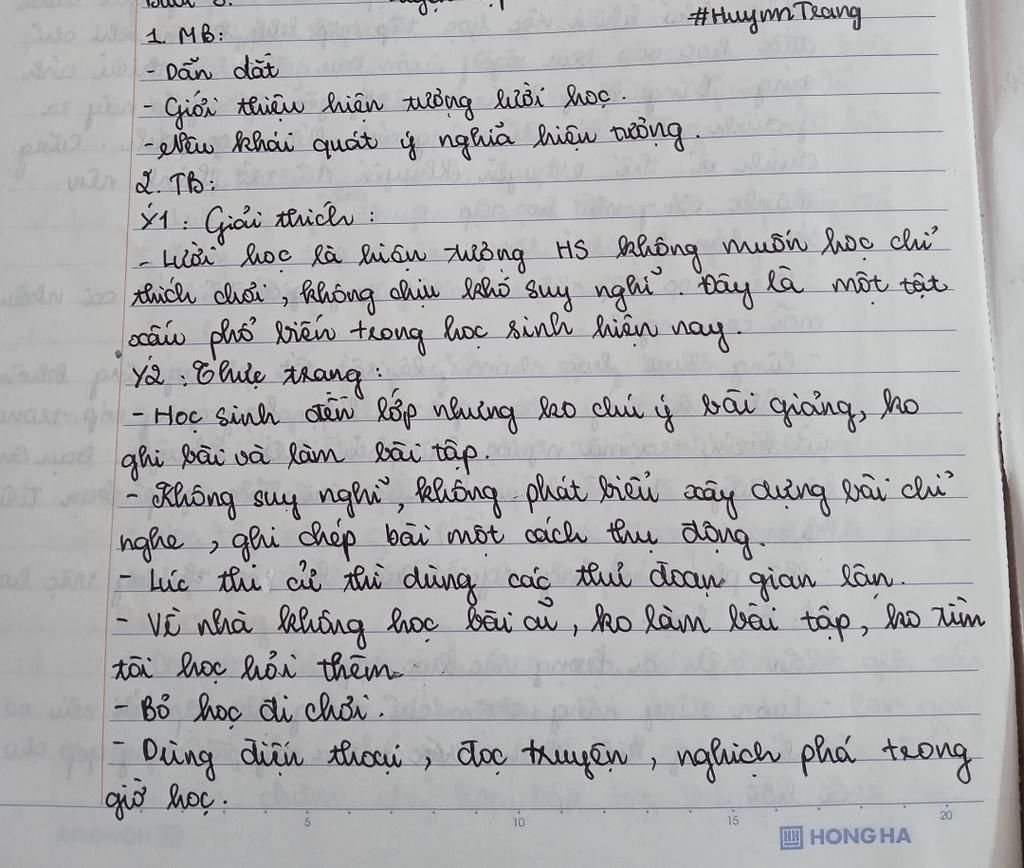 #HuynnTrang
1. MB:
- Dẫn dắt
- Giới thiệu hiện tượng lười học.
- Nêu khái quát ý nghĩa hiện tượng.
2. TB:
Ý1: Giải thích:
- Lười học là hiện tượng HS không muốn học chỉ
thích chơi, không chịu khó suy nghĩ. Đây là một tật
xấu phổ biến trong học sinh hiện nay.
Ý2: Thực trạng:
- Học sinh đến lớp nhưng ko chú ý bài giảng, ko
ghi bài và làm bài tập.
- Không suy nghĩ, không phát biểu xây dựng bài chỉ
nghe, ghi chép bài một cách thụ động.
- Lúc thi cử thì dùng các thủ đoạn gian lận.
- Về nhà không học bài cũ, ko làm bài tập, ko tìm
tòi học hỏi thêm.
- Bỏ học đi chơi.
- Dùng điện thoại, đọc truyện, nghịch phá trong
giờ học.
5 10 15 20
HONG HA